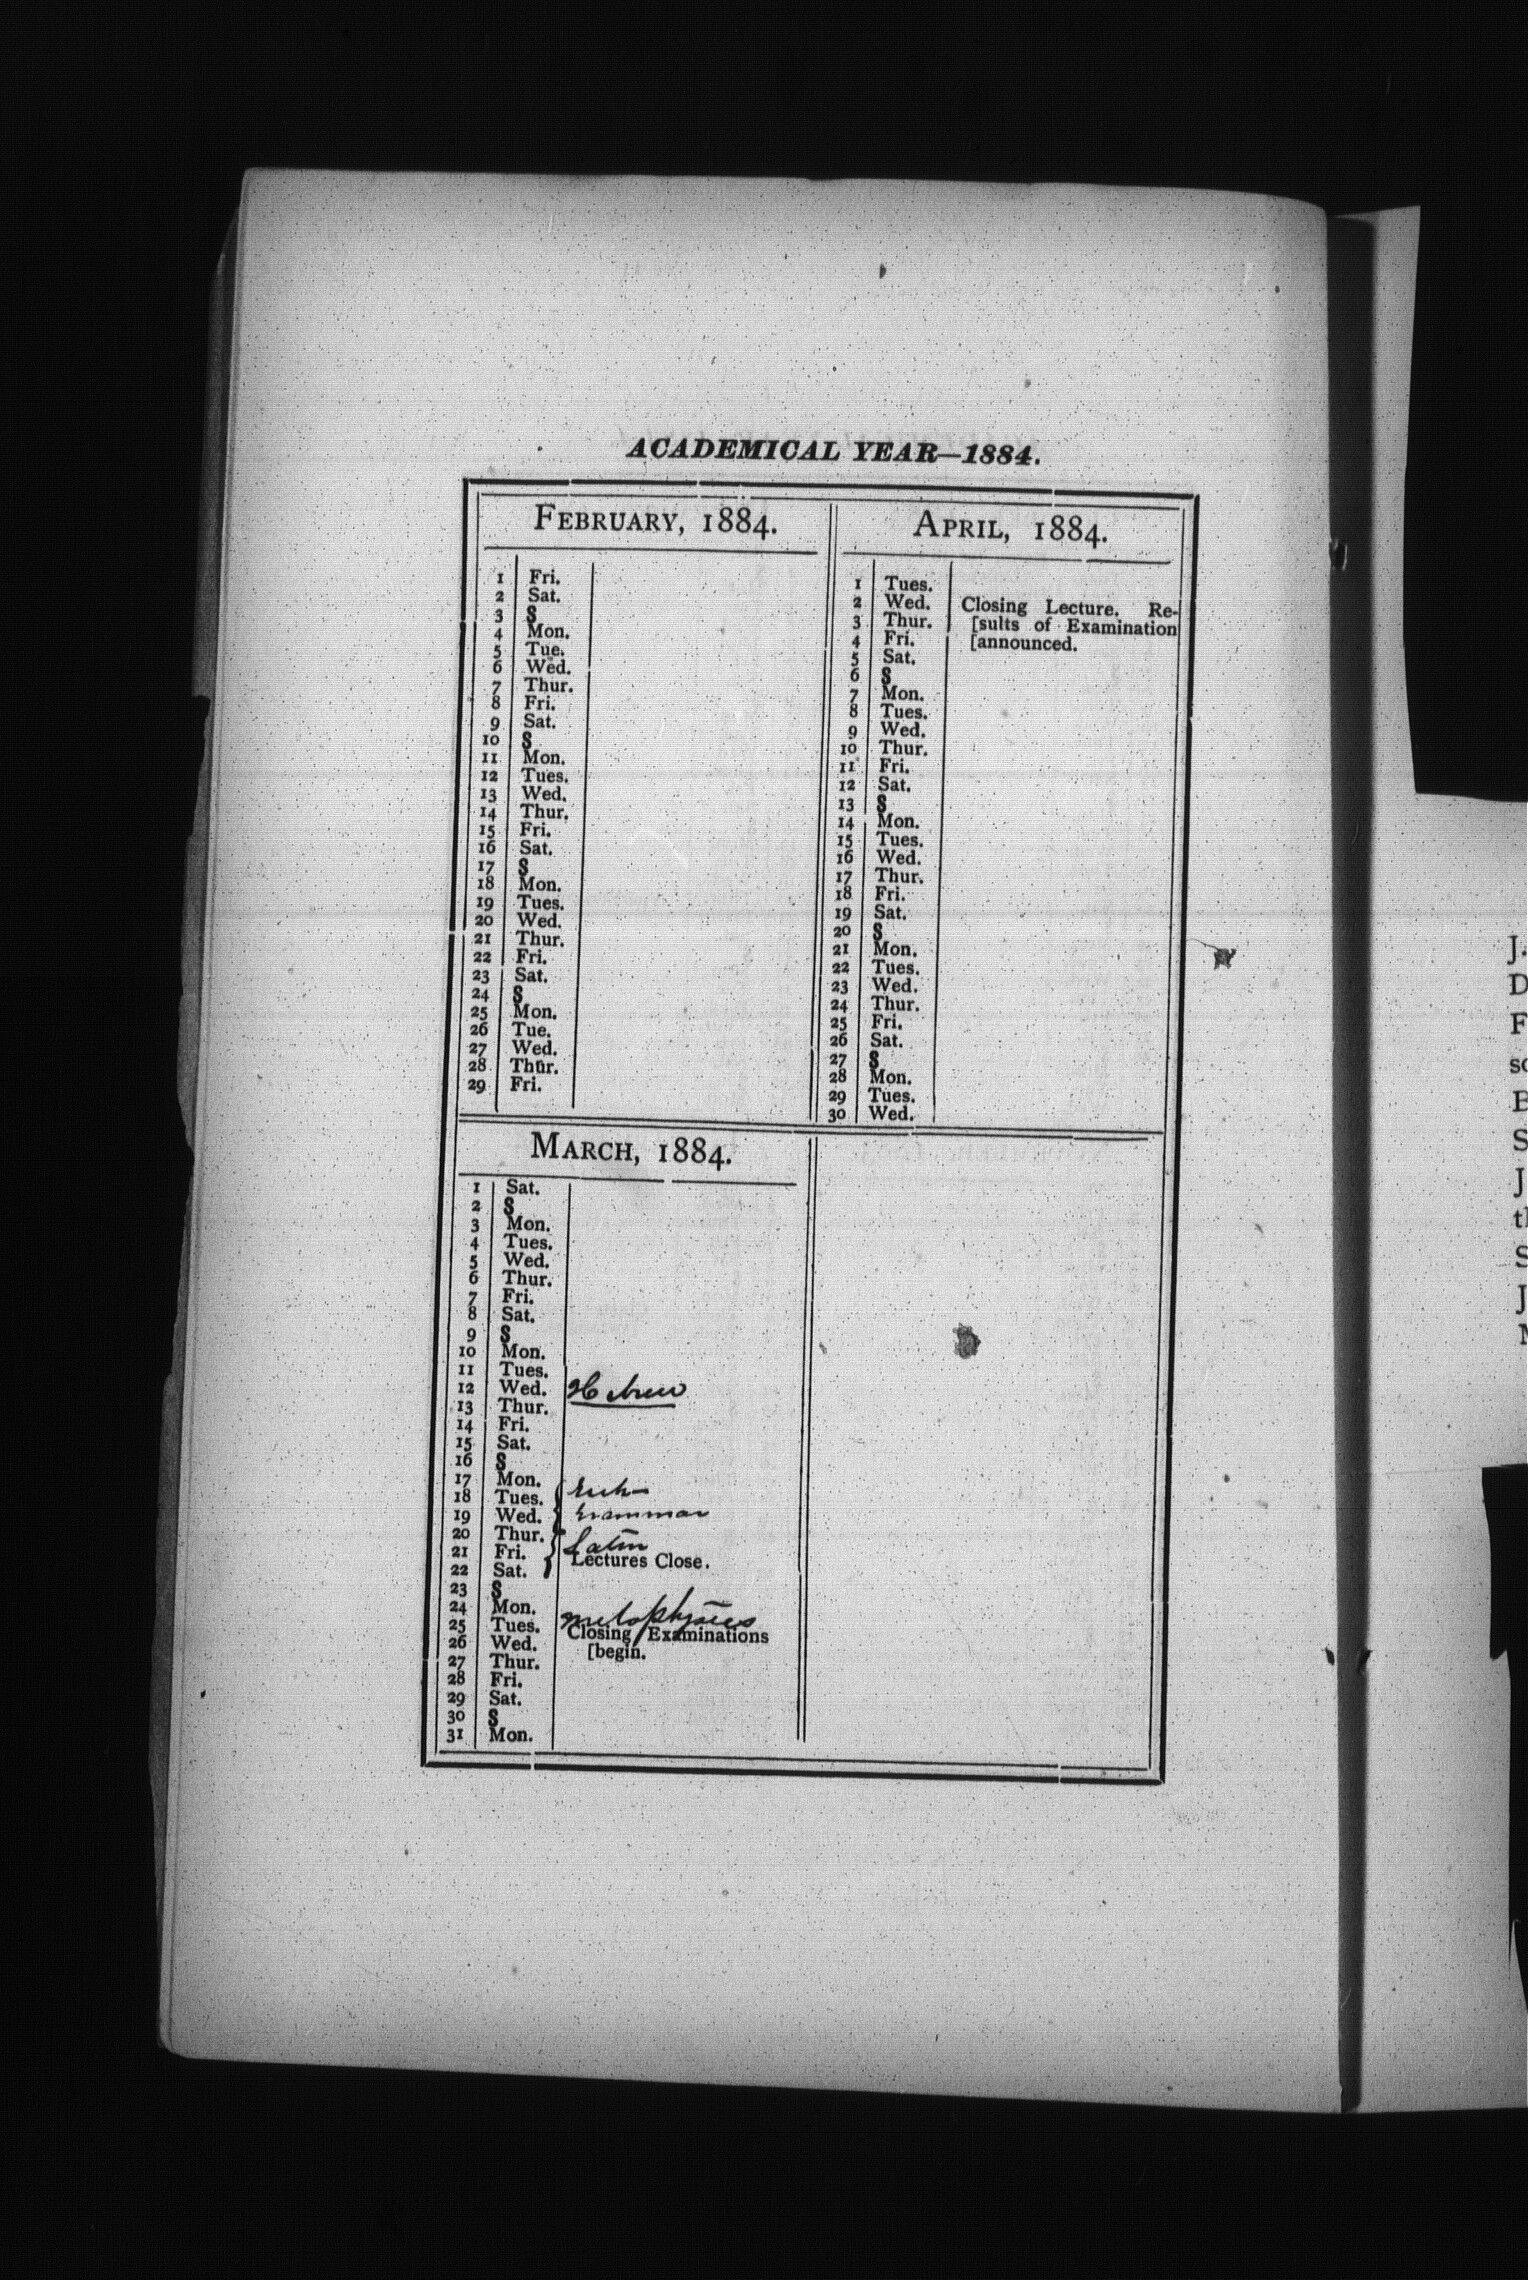 ACADEMICAL YEAR—1884.
FEBRUARY, 1884.
1 Fri.
2 Sat.
3 S
4 Mon.
5 Tue.
6 Wed.
7 Thur.
8 Fri.
9 Sat.
10 S
11 Mon.
12 Tues.
13 Wed.
14 Thur.
15 Fri.
16 Sat.
17 S
18 Mon.
19 Tues.
20 Wed.
21 Thur.
22 Fri.
23 Sat.
24 S
25 Mon.
26 Tue.
27 Wed.
28 Thur.
29 Fri.
MARCH, 1884.
1 Sat.
2 S
3 Mon.
4 Tues.
5 Wed.
6 Thur.
7 Fri.
8 Sat.
9 S
10 Mon.
11 Tues.
12 Wed. Hebrew
13 Thur.
14 Fri.
15 Sat.
16 S
17 Mon.
18 Tues.
19 Wed. Grammar
20 Thur.
21 Fri. Latin
22 Sat. Lectures Close.
23 S
24 Mon.
25 Tues. metaphysics
26 Wed. Closing Examinations
27 Thur. [begin.
28 Fri.
29 Sat.
30 S
31 Mon.
APRIL, 1884.
1 Tues.
2 Wed. Closing Lecture. Re-
3 Thur. [sults of Examination
4 Fri. [announced.
5 Sat.
6 S
7 Mon.
8 Tues.
9 Wed.
10 Thur.
11 Fri.
12 Sat.
13 S
14 Mon.
15 Tues.
16 Wed.
17 Thur.
18 Fri.
19 Sat.
20 S
21 Mon.
22 Tues.
23 Wed.
24 Thur.
25 Fri.
26 Sat.
27 S
28 Mon.
29 Tues.
30 Wed.